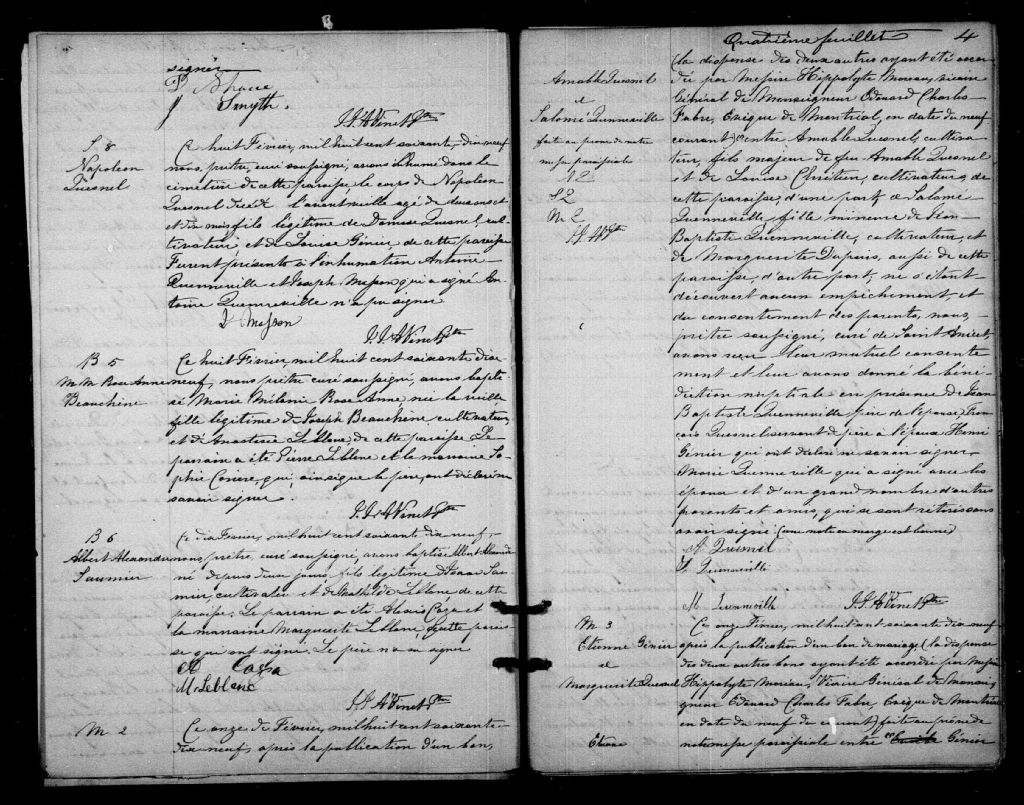 signer
Smyth.
J. J. A. Vinet Ptre
S 8
Napoleon
Quesnel
Ce huit Février, mil huit cent soixante, dix neuf
nous, prêtre, curé soussigné, avons inhumé dans le
cimetière de cette paroisse le corps de Napoleon
Quesnel décédé l'avant veille agé de deux ans et
et dix mois fils légitime de Quesnel, cul-
tivateur, et de Louise Génier de cette paroisse
Furent présents à l'inhumation Antoine
Quenneville et Joseph Masson qui a signé An-
toine Quenneville n'a pu signer
J Masson
J. J. A Vinet Ptre
B 5
M. M. Rose Anne
Beauchêne
Ce huit Février, mil huit cent soixante dix
neuf, nous prêtre curé soussigné, avons bapti-
sé Marie Mélanie Rose Anne née la veille
fille légitime de Joseph Beauchêne, cultivateur,
et d'Anastasie Leblanc, de cette paroisse Le
parrain a été Pierre Leblanc et la marraine So-
phie qui, ainsi que le père, ont déclaré ne
savoir signer.
J. J. A Vinet Ptre
B 6
Albert Alexandre
Saumier
Ce dix Février, mil huit cent soixante dix neuf,
nous, prêtre, curé soussigné, avons baptisé Albert Alexandre
né depuis deux jours fils légitime d'Isaac Sau-
mier, cultivateur et de Mathilde Leblanc de cette
paroisse. Le parrain a été Alexis Caza et
la marraine Marguerite Leblanc, de cette parois-
se qui ont signé. Le père n'a su signer
A Caza
M. Leblanc
J. J. A Vinet Ptre
M 2
Ce onze de Février, mil huit cent soixante
dix neuf, après la publication d'un ban,
Quatrième feuillet 4
Amable Quesnel
et
Salomé Quenneville
fait au prone de notre
messe paroissiale
M 2
(la dispense des deux autres ayant été accor-
dée par Messire Hippolyte Moreau, vicaire
Général de Monseigneur Edouard Charles
Fabre, Evêque de Montréal, en date du neuf
courant) entre Amable Quesnel, cultiva-
teur, fils majeur de feu Amable Quesnel
et de Louise Chrétien, cultivateur, de
cette paroisse, d'une part; et Salomé
Quenneville, fille mineure de Jean
Baptiste Quenneville, cultivateur, et
de Marguerite Dupuis, aussi de cette
paroisse, d'autre part, ne s'étant
découvert aucun empêchement, et
du consentement des parents, nous,
prêtre soussigné, curé de Saint Anicet,
avons reçu leur mutuel consente-
ment et leur avons donné la béné-
diction nuptiale en présence de Jean
Baptiste Quenneville père de l'épouse, Fran-
çois Quesnel servant de père à l'époux Henri
Génier qui ont déclaré ne savoir signer
Marie Quenneville qui a signé avec les
époux et d'un grand nombre d'autres
parents et amis, qui se sont retirés sans
avoir signé (une note en marge est bonne)
A. Quesnel
S. Quenneville
M Quenneville J. J. A Vinet Ptre
M 3
Etienne Génier
et
Marguerite Quesnel
Etienne
Ce onze Février, mil huit cent soixante dix neuf
après la publication d'un ban de mariage (la dispense
des deux autres bans ayant été accordée par Messire
Hippolyte Moreau, Vicaire Général de Monsei-
gneur Edouard Charles Fabre, Evêque de Montréal
en date du neuf de courant) fait au prone de
notre messe paroissiale entre Génier